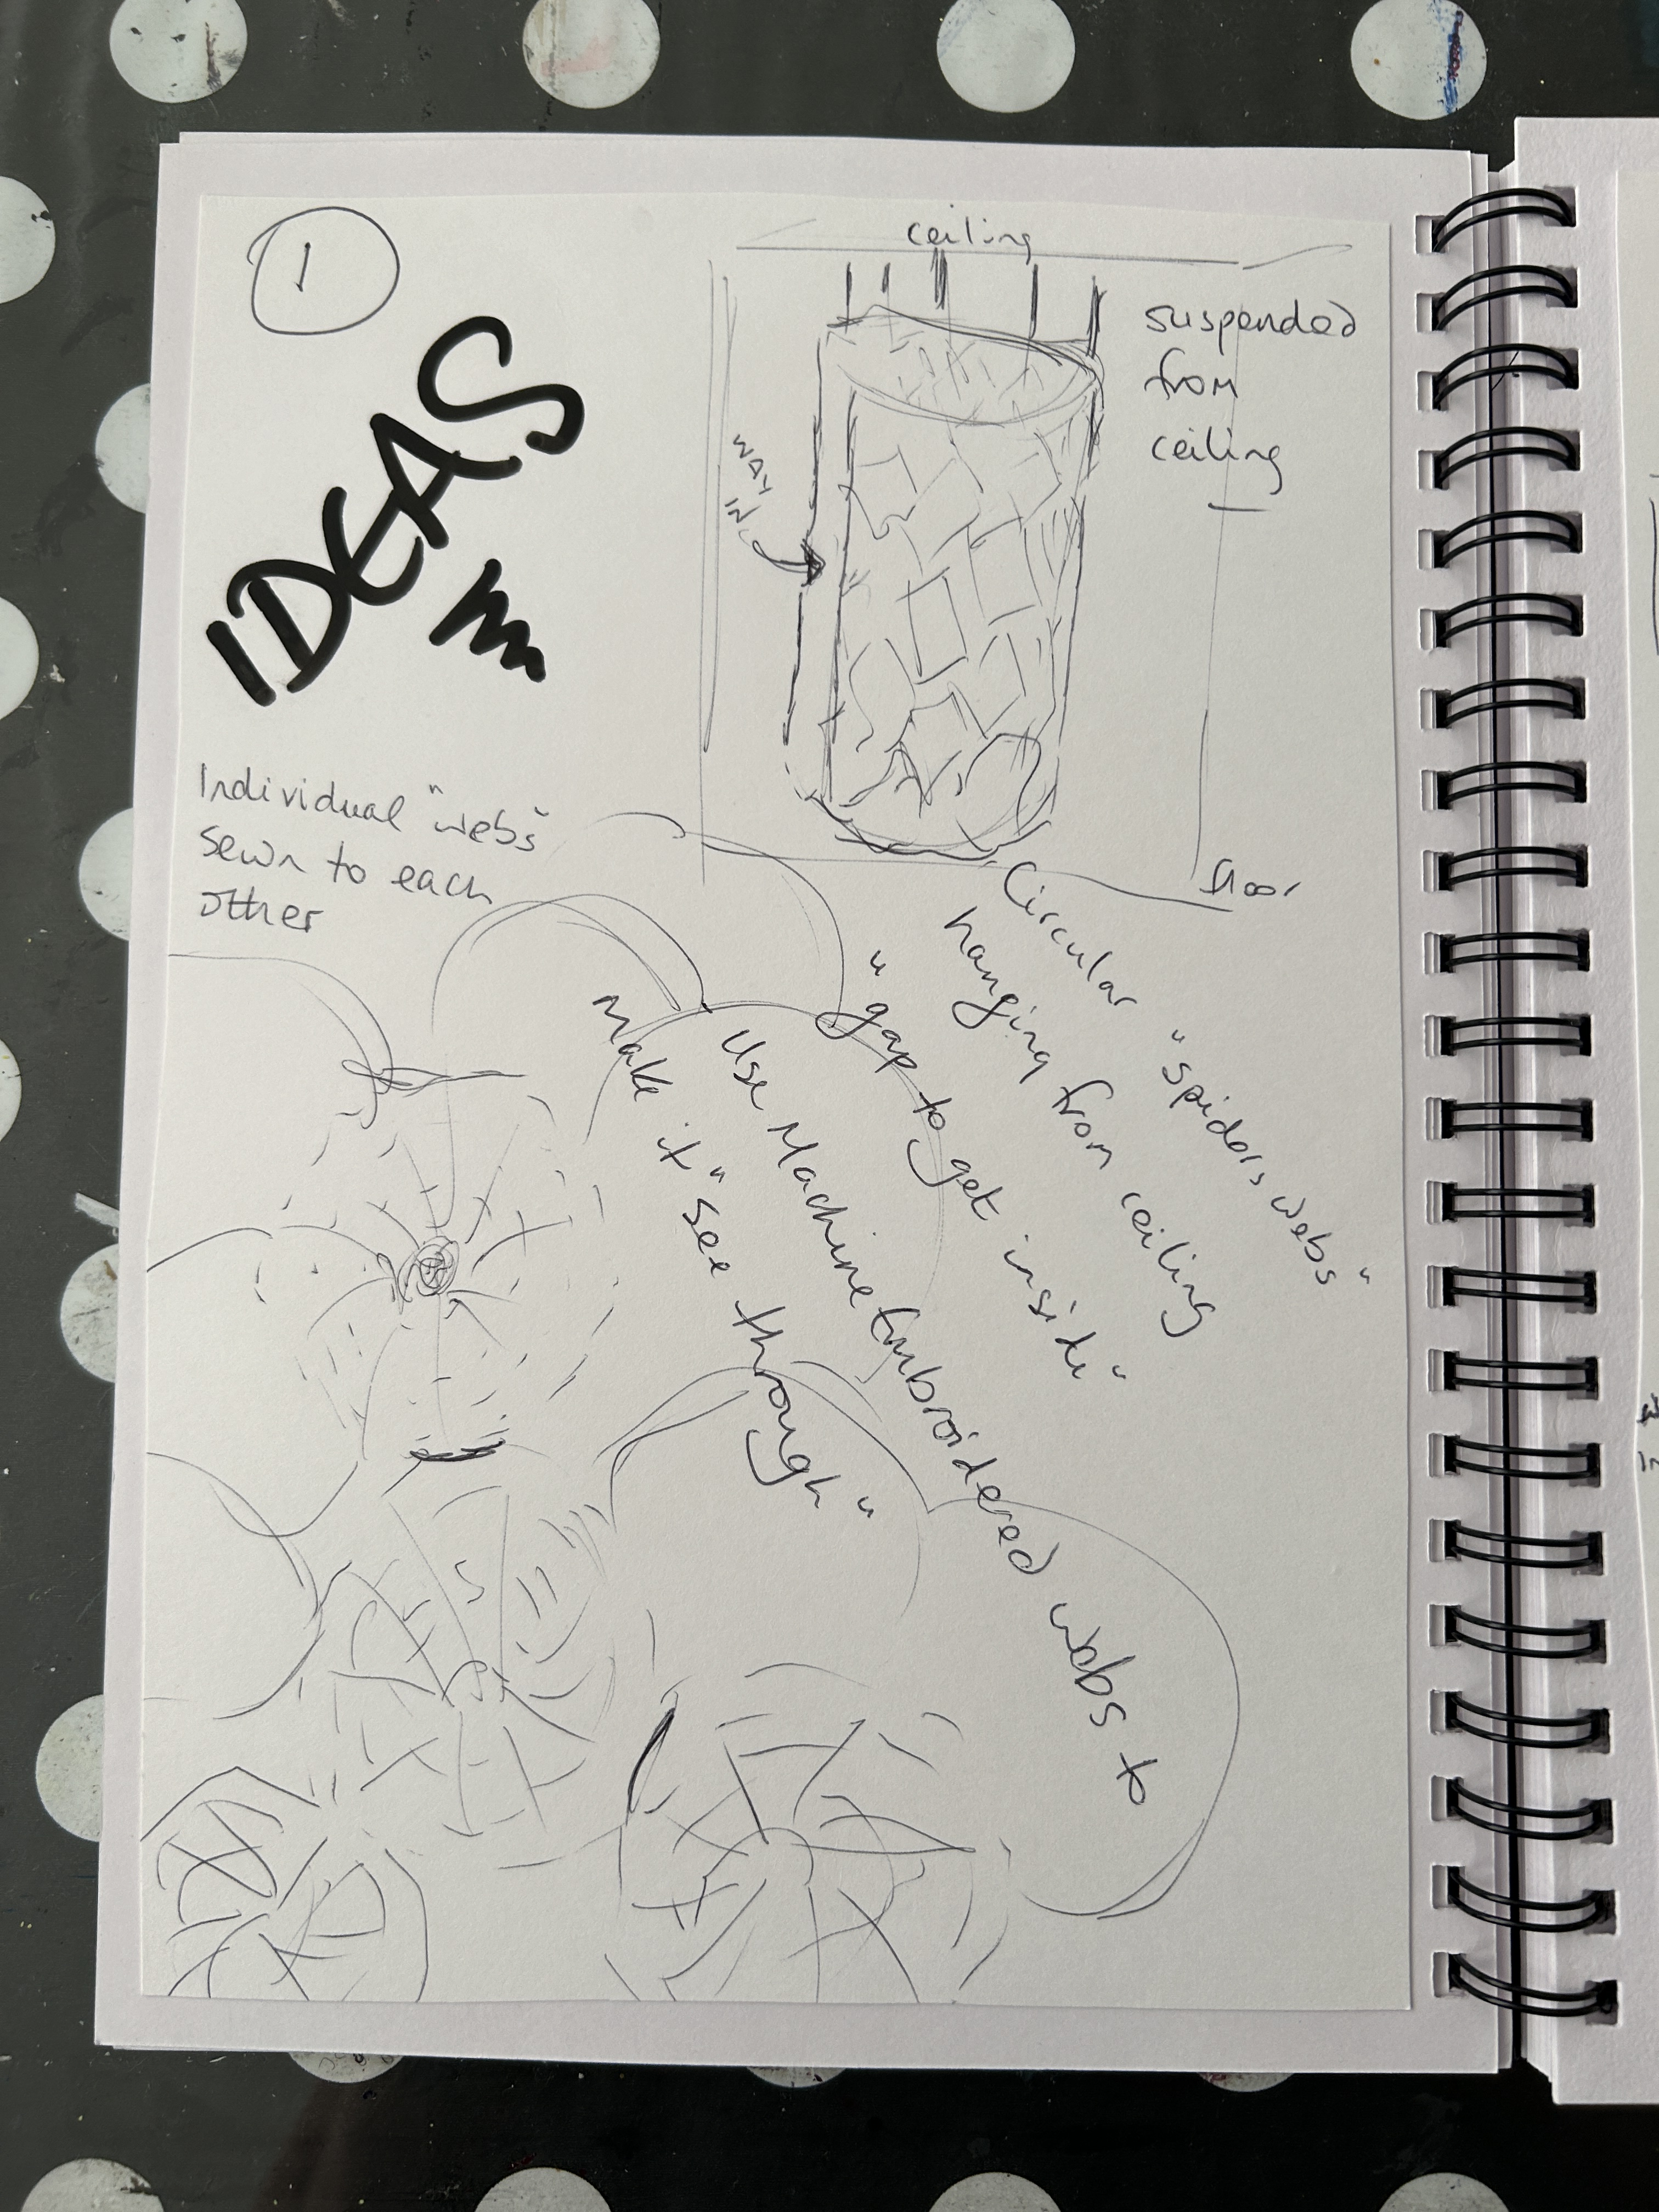 1
IDEAS
ceiling
suspended
from
ceiling
WAY
IN
floor
Individual "webs"
sewn to each
other
Circular "spiders webs"
hanging from ceiling
"gap to get inside"
Use Machine Embroidered webs to
Make it "see through"